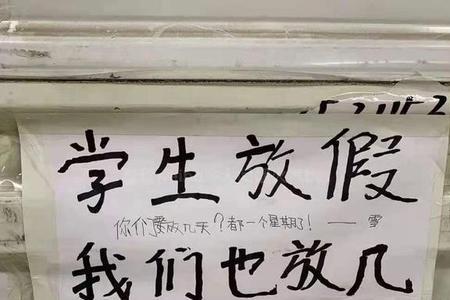 学生放假
你们要放几天？都一个星期了！——雪
我们也放几